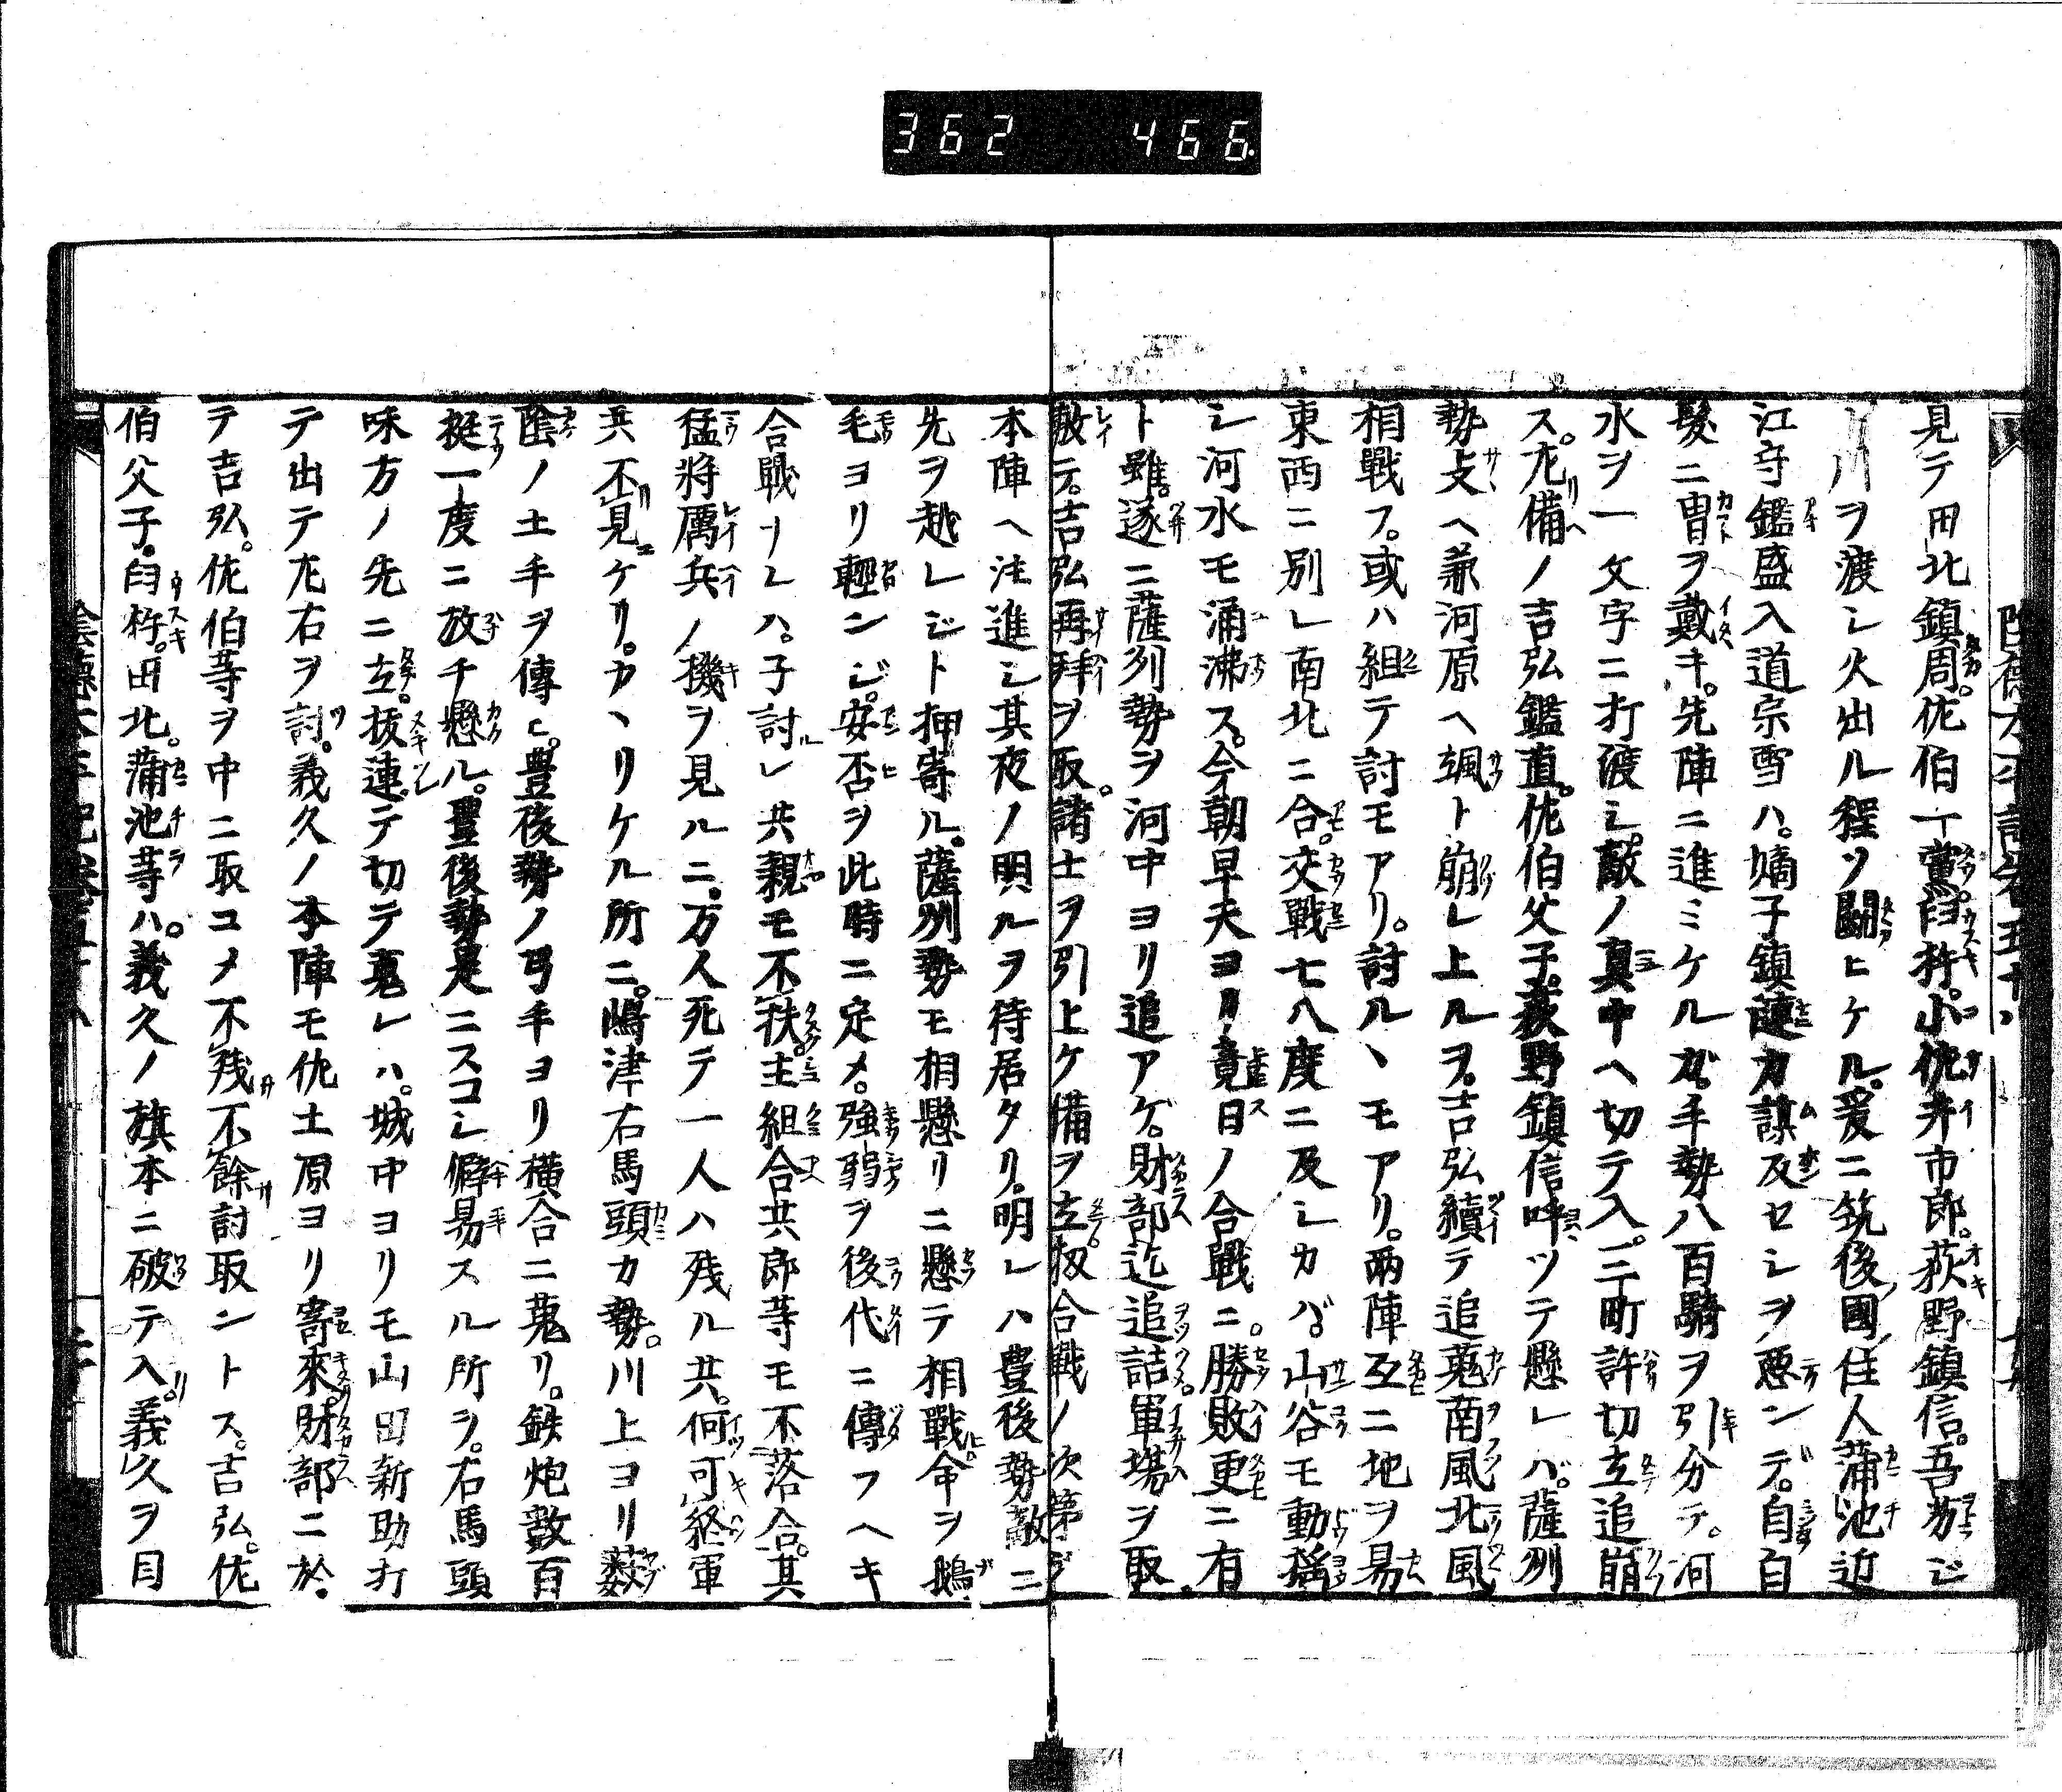 362 466
見テ田北鎮周。佐伯一黨。臼杵。小佐井市郎。荻野鎮信。吾劣ジ
ト川ヲ渡シ火出ル程ソ闘ヒケル。爰ニ筑後國ノ住人蒲池近
江守鑑盛入道宗雪ハ。嫡子鎮漣カ謀反セシヲ悪ンデ。自白
髪ニ冑ヲ戴キ。先陣ニ進ミケルガ。手勢八百騎ヲ引分テ。河
水ヲ一文字ニ打渡シ。敵ノ真中ヘ切テ入。二三町許切立追崩
ス。左備ノ吉弘鑑直。佐伯父子。荻野鎮信呼ツテ懸レバ。薩刕
勢支ヘ兼河原ヘ颯ト崩レ上ルヲ。吉弘續テ追蒐南風北風
相戰フ。或ハ組テ討モアリ。討ルヽモアリ。兩陣互ニ地ヲ易
東西ニ別レ南北ニ合。交戰七八度ニ及シカバ。山谷モ動揺
シ河水モ涌沸ス。今朝早天ヨリ竟日ノ合戰ニ。勝敗更ニ有
ト雖。遂ニ薩刕勢ヲ河中ヨリ追アゲ。財部迄追詰軍場ヲ取
敷テ。吉弘再拜ヲ取。諸士ヲ引上ケ備ヲ立扱合戰ノ次第ヲ
本陣ヘ注進シ其夜ノ明ルヲ待居タリ。明レハ豊後勢敵ニ
先ヲ越レジト押寄ル。薩州勢モ相懸リニ懸テ相戰ヒ。命ヲ鵝
毛ヨリ輕ンジ。安否ヲ此時ニ定メ。強弱ヲ後代ニ傳フヘキ
合戰ナレハ。子討レ共親モ不扶。主組合共郎等モ不落合。其
猛將厲兵ノ機ヲ見ルニ。万人死テ一人ハ残ル共。何可終軍
共不見ケリ。カヽリケル所ニ。嶋津右馬頭カ勢。川上ヨリ薮
陰ノ土手ヲ傳ヒ。豊後勢ノ弓手ヨリ横合ニ蒐リ。鉄炮数百
挺一度ニ放チ懸ル。豊後勢是ニスコシ僻易スル所ヲ。右馬頭
味方ノ先ニ立。抜連テ切テ蒐レハ。城中ヨリモ山田新助打
テ出テ左右ヲ討。義久ノ本陣モ佐土原ヨリ寄來。財部ニ於
テ吉弘。佐伯等ヲ中ニ取コメ不残不餘討取ントス。吉弘。佐
伯父子。臼杵。田北。蒲池等ハ。義久ノ旗本ニ破テ入。義久ヲ目